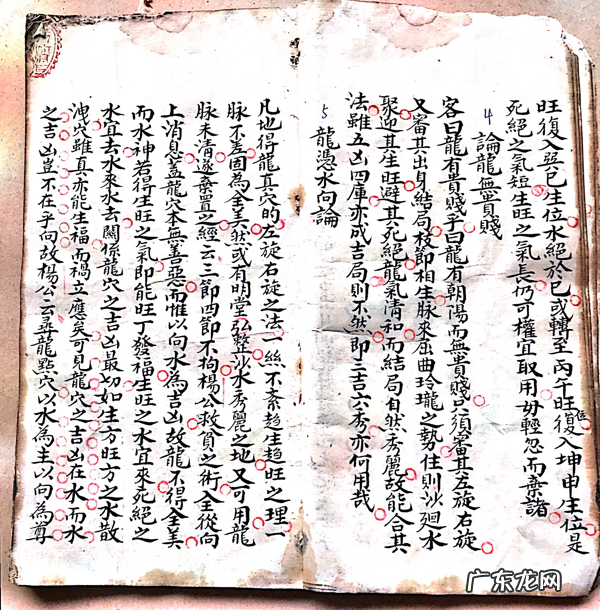 旺復入巽巳生位水絕於巳或轉至丙午旺位復入坤申生位是
死絕之氣短生旺之氣長仍可權宜取用毋輕忽而棄諸
4 論龍無貴賤
客曰龍有貴賤乎曰龍有朝陽而無貴賤只須審其左旋右旋
又審其出身結局枝節相生脉來屈曲玲瓏之勢住則沙廻水
聚迎其生旺避其死絕龍氣清和而結局自然秀麗故能合其
法雖五凶四庫亦成吉局則不然即三吉六秀亦何用哉
5 龍憑水向論
凡地得龍真穴的左旋右旋之法一絲不紊趋生趋旺之理一
脉不差固為全美然或有明堂弘整沙水秀麗之地又可用龍
脉未清遂棄置之經云三節四節不拘楊公救貧之術全從向
上消息盖龍穴本無善惡而惟以向水為吉凶故龍不得全美
而水神若得生旺之氣即能旺丁發福生旺之水宜來死絕之
水宜去水來水去關係龍穴之吉凶最切如生方旺方之水散
洩穴雖真亦能生福而禍立應矣可見龍穴之吉凶在水而水
之吉凶豈不在乎向故楊公云尋龍點穴以水為主以向為尊
广东龙网